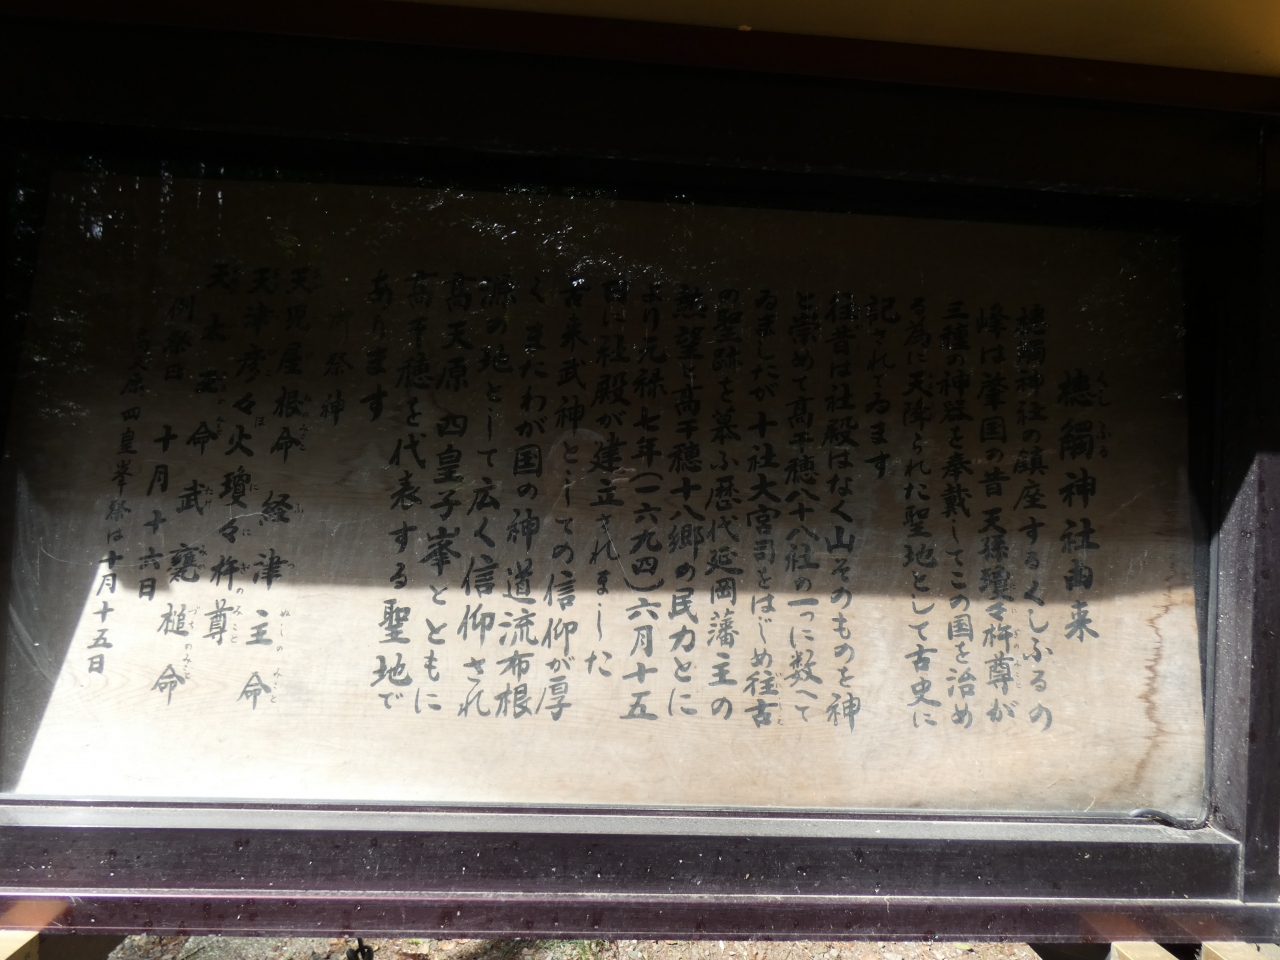 槵觸神社由来
槵觸神社の鎮座するくしふるの
峰は肇国の昔天孫瓊々杵尊が
三種の神器を奉戴してこの国を治め
る為に天降られた聖地として古史に
記されてゐます
往昔は社殿はなく山そのものを神
と崇めて高千穂八十八社の一つに数へて
ゐましたが十社大宮司をはじめ往古
の聖跡を慕ふ歴代延岡藩主の
熱望と高千穂十八郷の民力とに
より元禄七年(一六九四)六月十五
日に社殿が建立されました
古来武神としての信仰が厚
くまたわが国の神道流布根
源の地として広く信仰され
高天原四皇子峯とともに
高千穂を代表する聖地で
あります
御祭神
天児屋根命 経津主命
天津彦々火瓊々杵尊
天太玉命 武甕槌命
例祭日 十月十六日
四皇峯祭は十月十五日